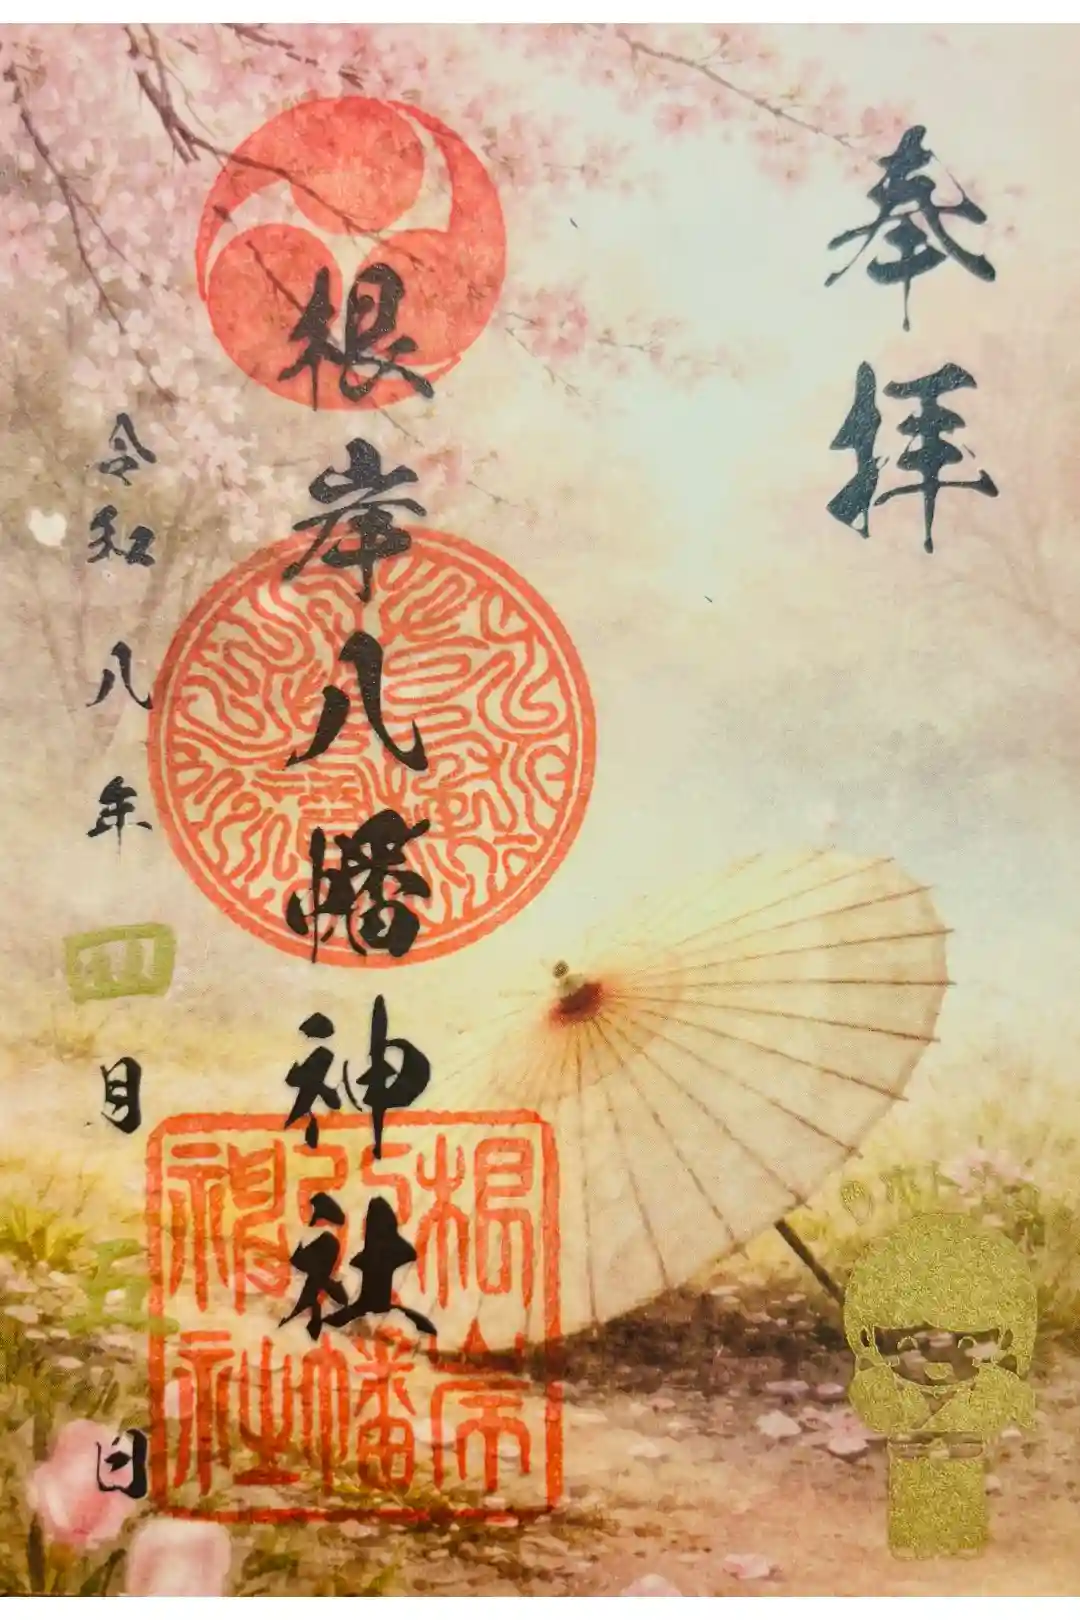 奉拝
根岸八幡神社
令和八年四月五日
根岸八幡神社